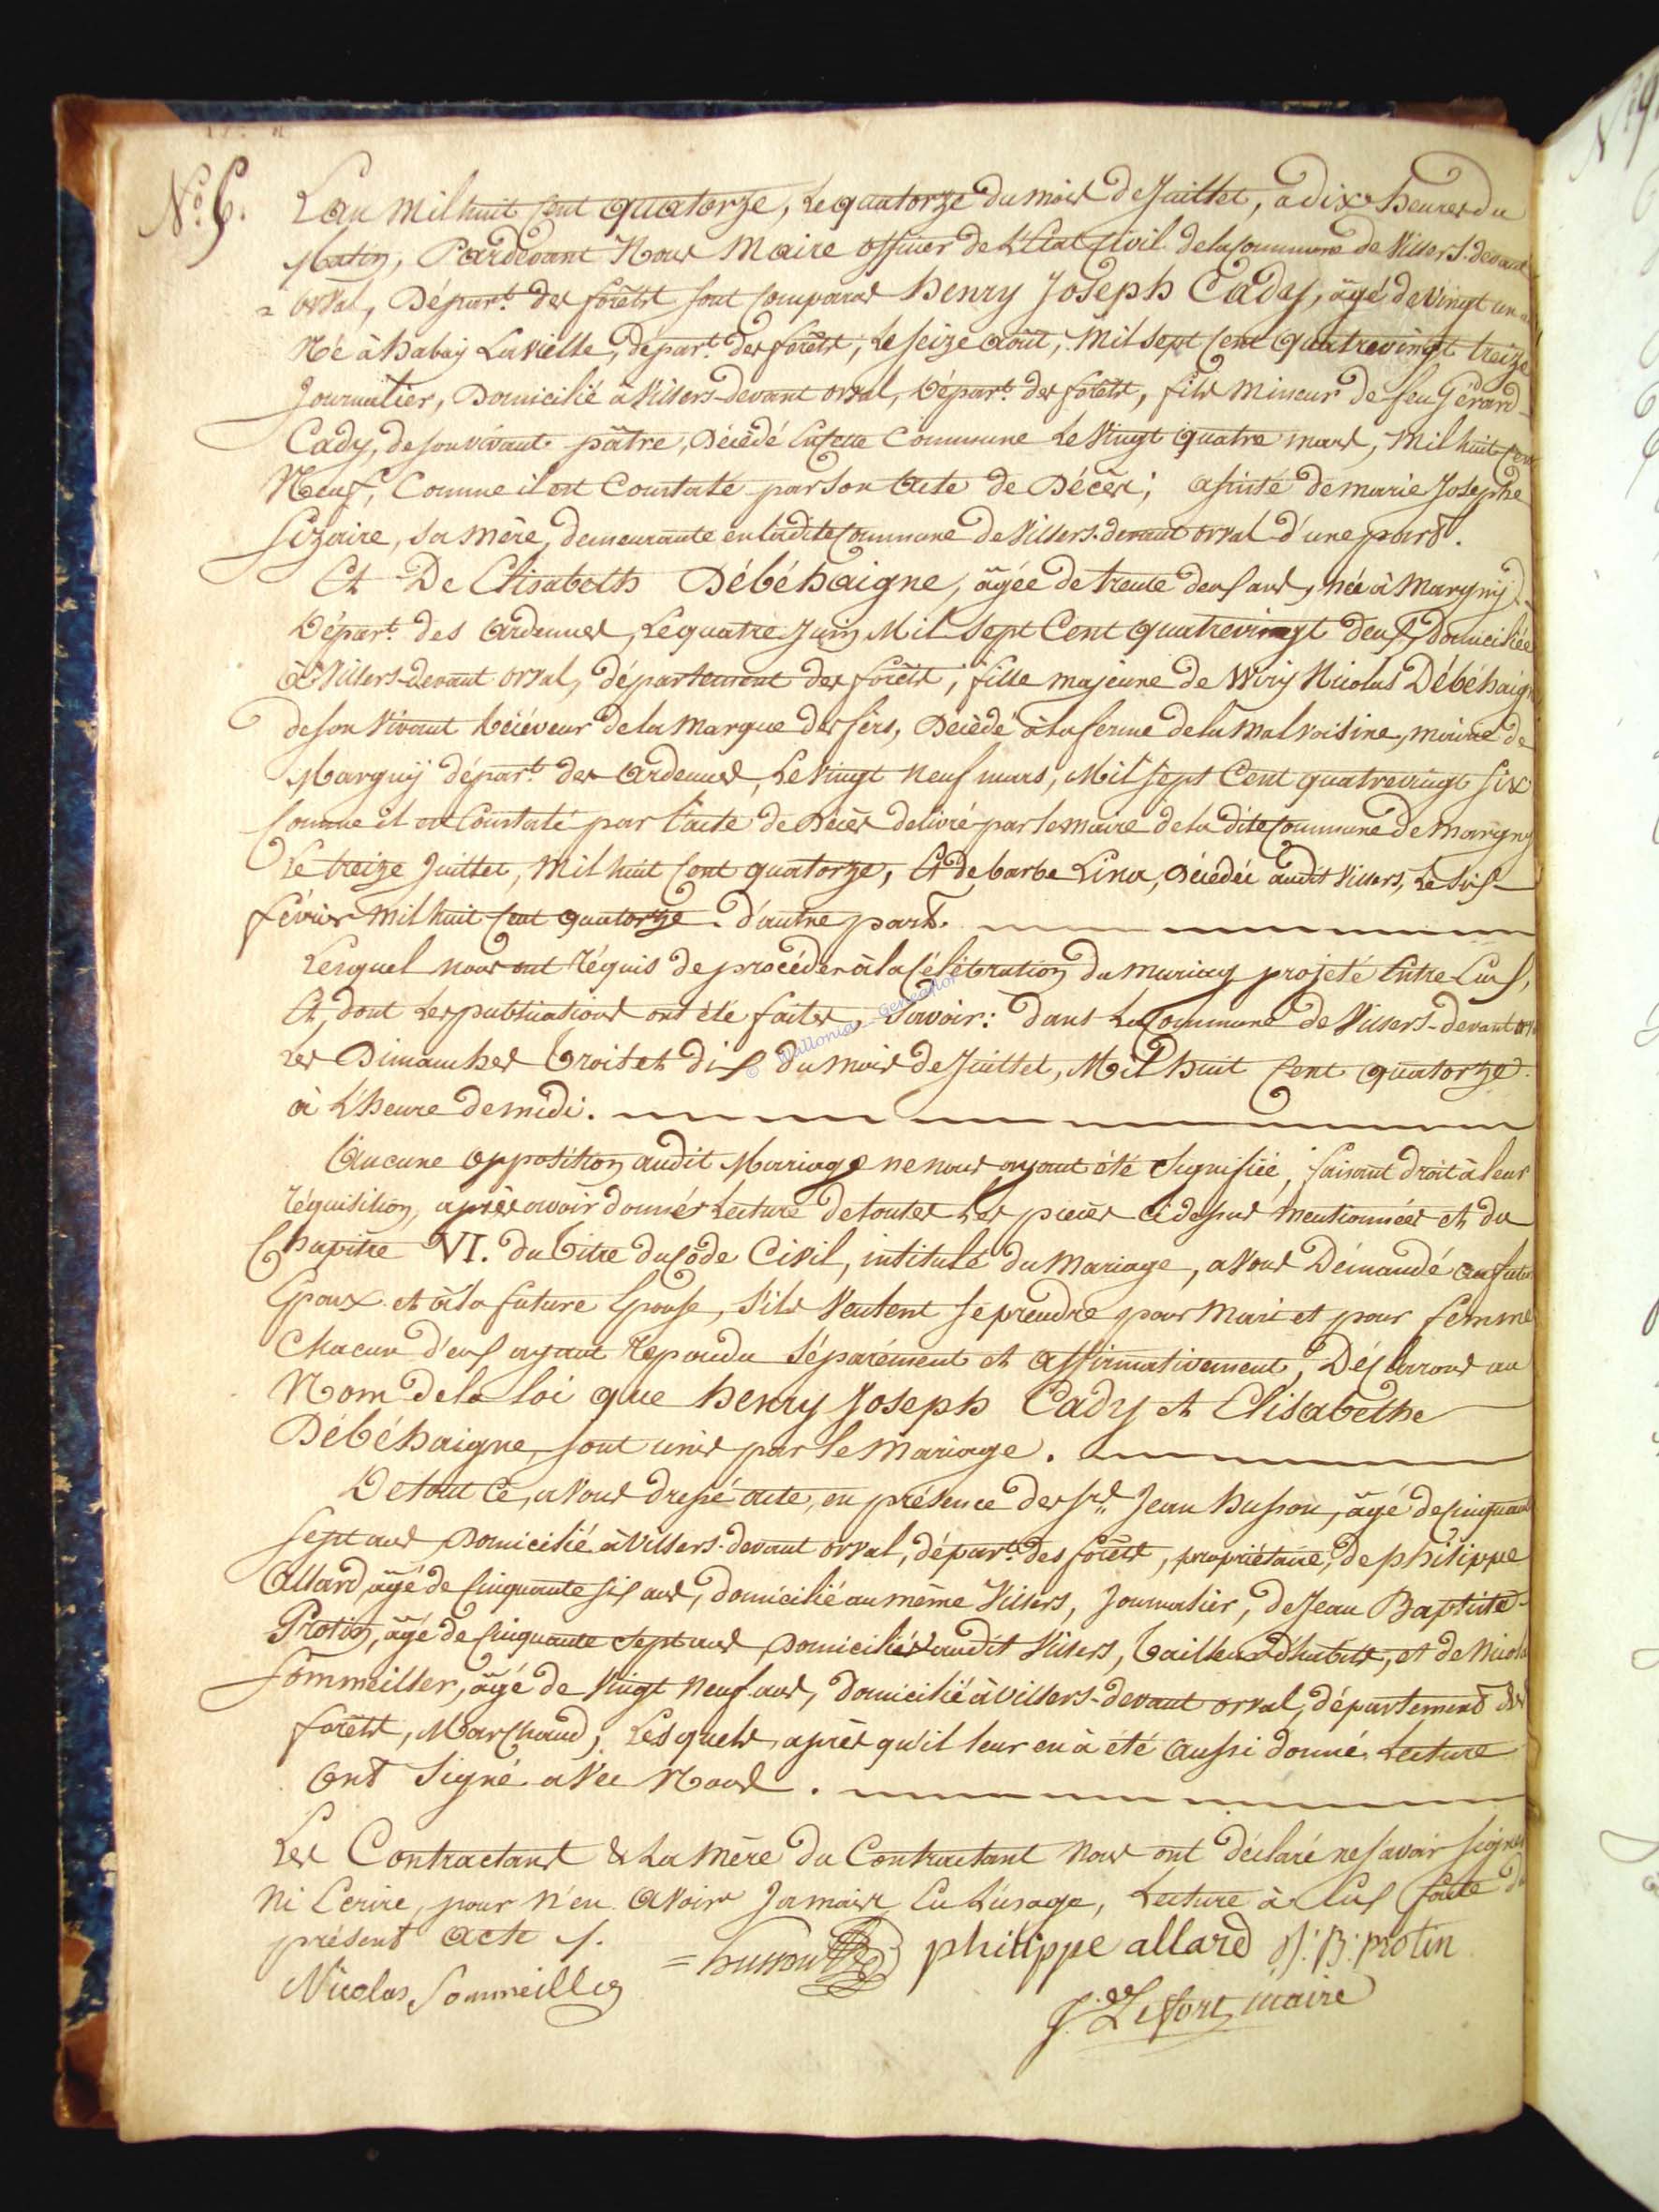 N.º 6.
L'an Mil huit Cent quatorze, le quatorze du mois de Juillet, a dix heures du
Matin, Pardevant Nous Maire officier de l'Etat Civil de la Commune de Villers-devant
= orval, Départ.t des forêts sont Comparus henry Joseph Cady, âgé de vingt un
Né à habay Lavielle, départ.t des forêts, le seize août, Mil sept Cent quatrevingt treize
Journalier, Domicilié à Villers-devant orval, Départ.t des forêts, fils Mineur de feu Gérard
Cady, de son vivant pâtre, Décédé en cette Commune le Vingt quatre mars, Mil huit Cent
Neuf, Comme il est Constaté par son acte de Décès; assisté de marie Josephe
Sizaire, sa mère, demeurante en ladite Commune de Villers-devant orval d'une part.
Et De Elisabeth Débéhaigne, âgée de trente deux ans, née à Margny
Départ.t des Ardennes, le quatre Juin Mil Sept Cent quatrevingt deux, domiciliée
à Villers-devant orval, département des forêts, fille majeure de Wiry Nicolas Débéhaigne
de son Vivant Récéveur de la Marque des fers, Décédé à la ferme de la Malvoisine, mairie de
Margny départ.t des Ardennes, Le Vingt Neuf mars, Mil Sept Cent quatrevingt Six
Comme il est Constaté par l'acte de Décès délivré par le maire de la dite Commune de Margny
Le treize Juillet, Mil huit Cent quatorze, Et de barbe Lina, Décédée audit Villers, Le Six
février Mil huit Cent quatorze. d'autre part.
Lesquel nous ont réquis de procéder à la Célébration du Mariag projeté Entre Eux,
Et, dont Les publications ont été faites, Savoir: dans La Commune de Villers-devant orv
Les Dimanches trois et dix du mois de Juillet, Mil huit Cent quatorze
à L'heure de midi.
© Wallonia_Geneanet
Aucune opposition audit Mariage ne nous ayant été Signifiée, faisant droit à leur
réquisition, après avoir donnés Lecture de toutes Les pieces ci dessus mentionnées et du
Chapitre VI. du titre du Côde Civil, intitulé du Mariage, avons Démandé au futur
Epoux et à la future Epouse, s'ils Veulent se prendre pour Mari et pour femme
Chacun d'eux ayant Repondu Séparément et Affirmativement, Déclarons au
Nom de la Loi que henry Joseph Cady et Elisabethe
Débéhaigne, sont unis par le Mariage.
De tout Ce, avons dressé acte, en présence des Srs Jean husson, âgé de Cinquante
Sept ans Domicilié à Villers-devant orval, départ.t des forêts, propriétaire, de philippe
Allard, âgé de Cinquante six ans, domicilié au même Villers, Journalier, de Jean Baptiste
Protin, âgé de Cinquante Sept ans Domiciliés audit Villers, tailleur d'habits, et de Nicolas
Sommeiller, âgé de Vingt Neuf ans, domicilié à Villers-devant orval, département des
forêts, Marchand; Lesquels, après qu'il leur en à été aussi donné Lecture
Ont Signé avec Nous.
Les Contractans & La Mère du Contractant Nous ont déclaré ne savoir signer
Ni Ecrire, pour n'en avoir Jamais Eu L'usage, Lecture à Eux faite du
présent Acte.
= husson philippe allard J: B: protin
Nicolas Sommeiller
J. Lefort maire